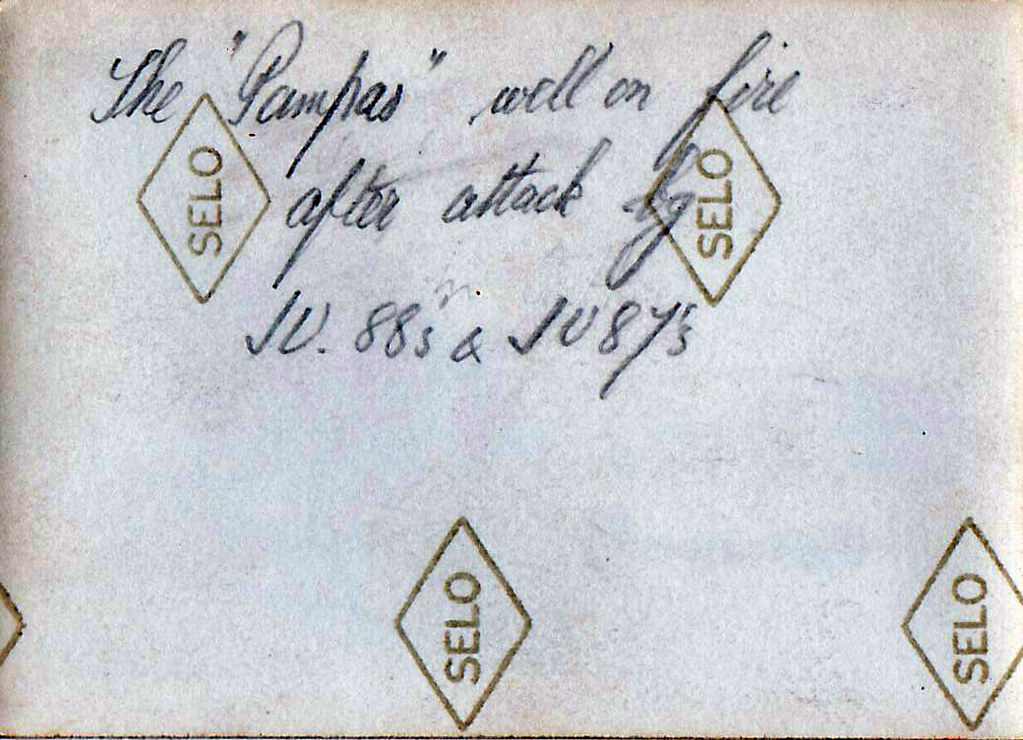 The "Pampas" well on fire
after attack by
JU. 88s & JU 87s
SELO
SELO
SELO
SELO